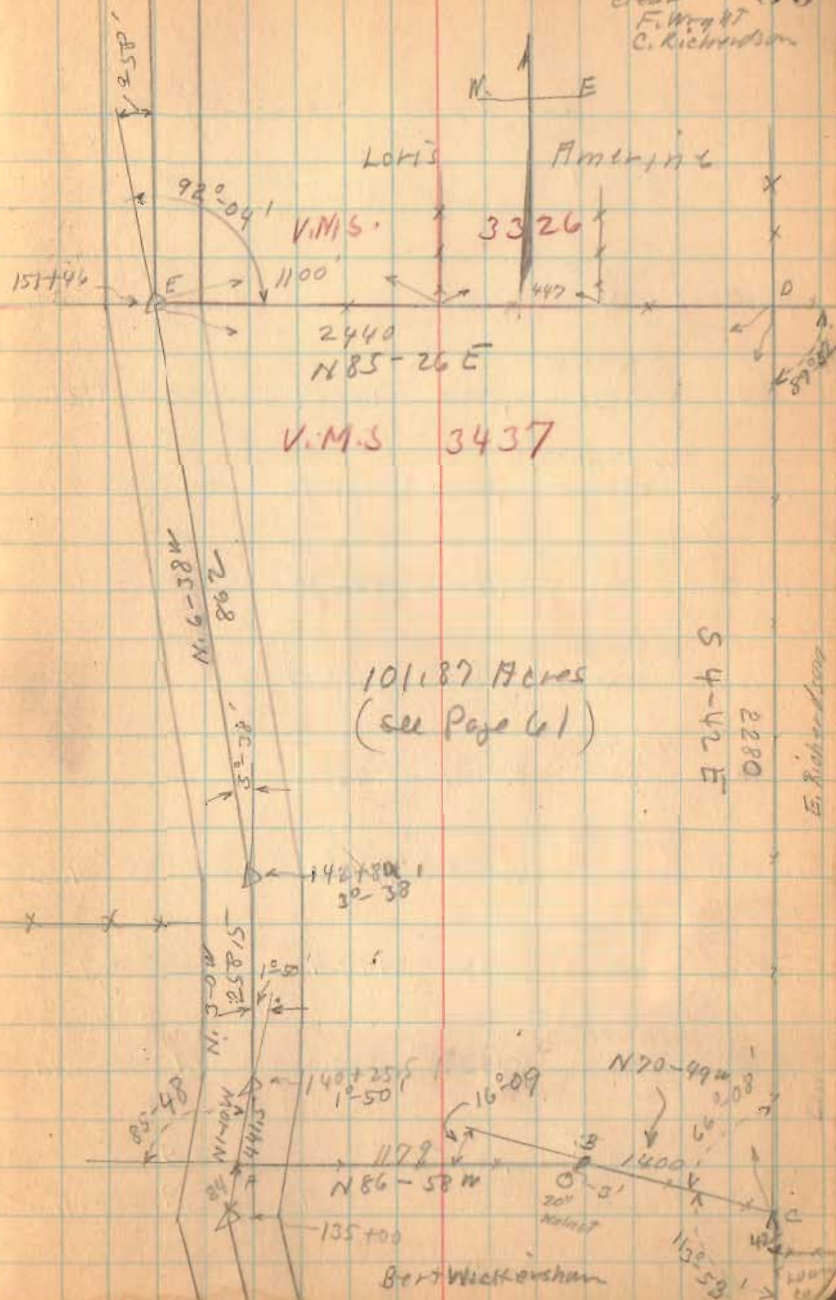 F. Wright
C. Richardson
N. E
Loris Amerine
92°-04'
V.M.S. 3326
151+46
E
1100'
447
D
2440
N 85-26 E
V.M.S 3437
N. 6-38 W
862
101.87 Acres
(see Page 61)
S 4-42 E
2280
E. Richardson
3°-38'
3°-38'
N 3-0 W
258.5
1°-50'
140+25.5
1°-50'
N 70-49 W
16°-09
85-48
441.5
A
1178
N 86-58 W
B
1400
20"
3'
C
113°-53'
135+00
Bert Wickersham